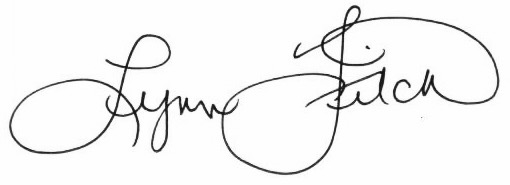 Lynn Fitch